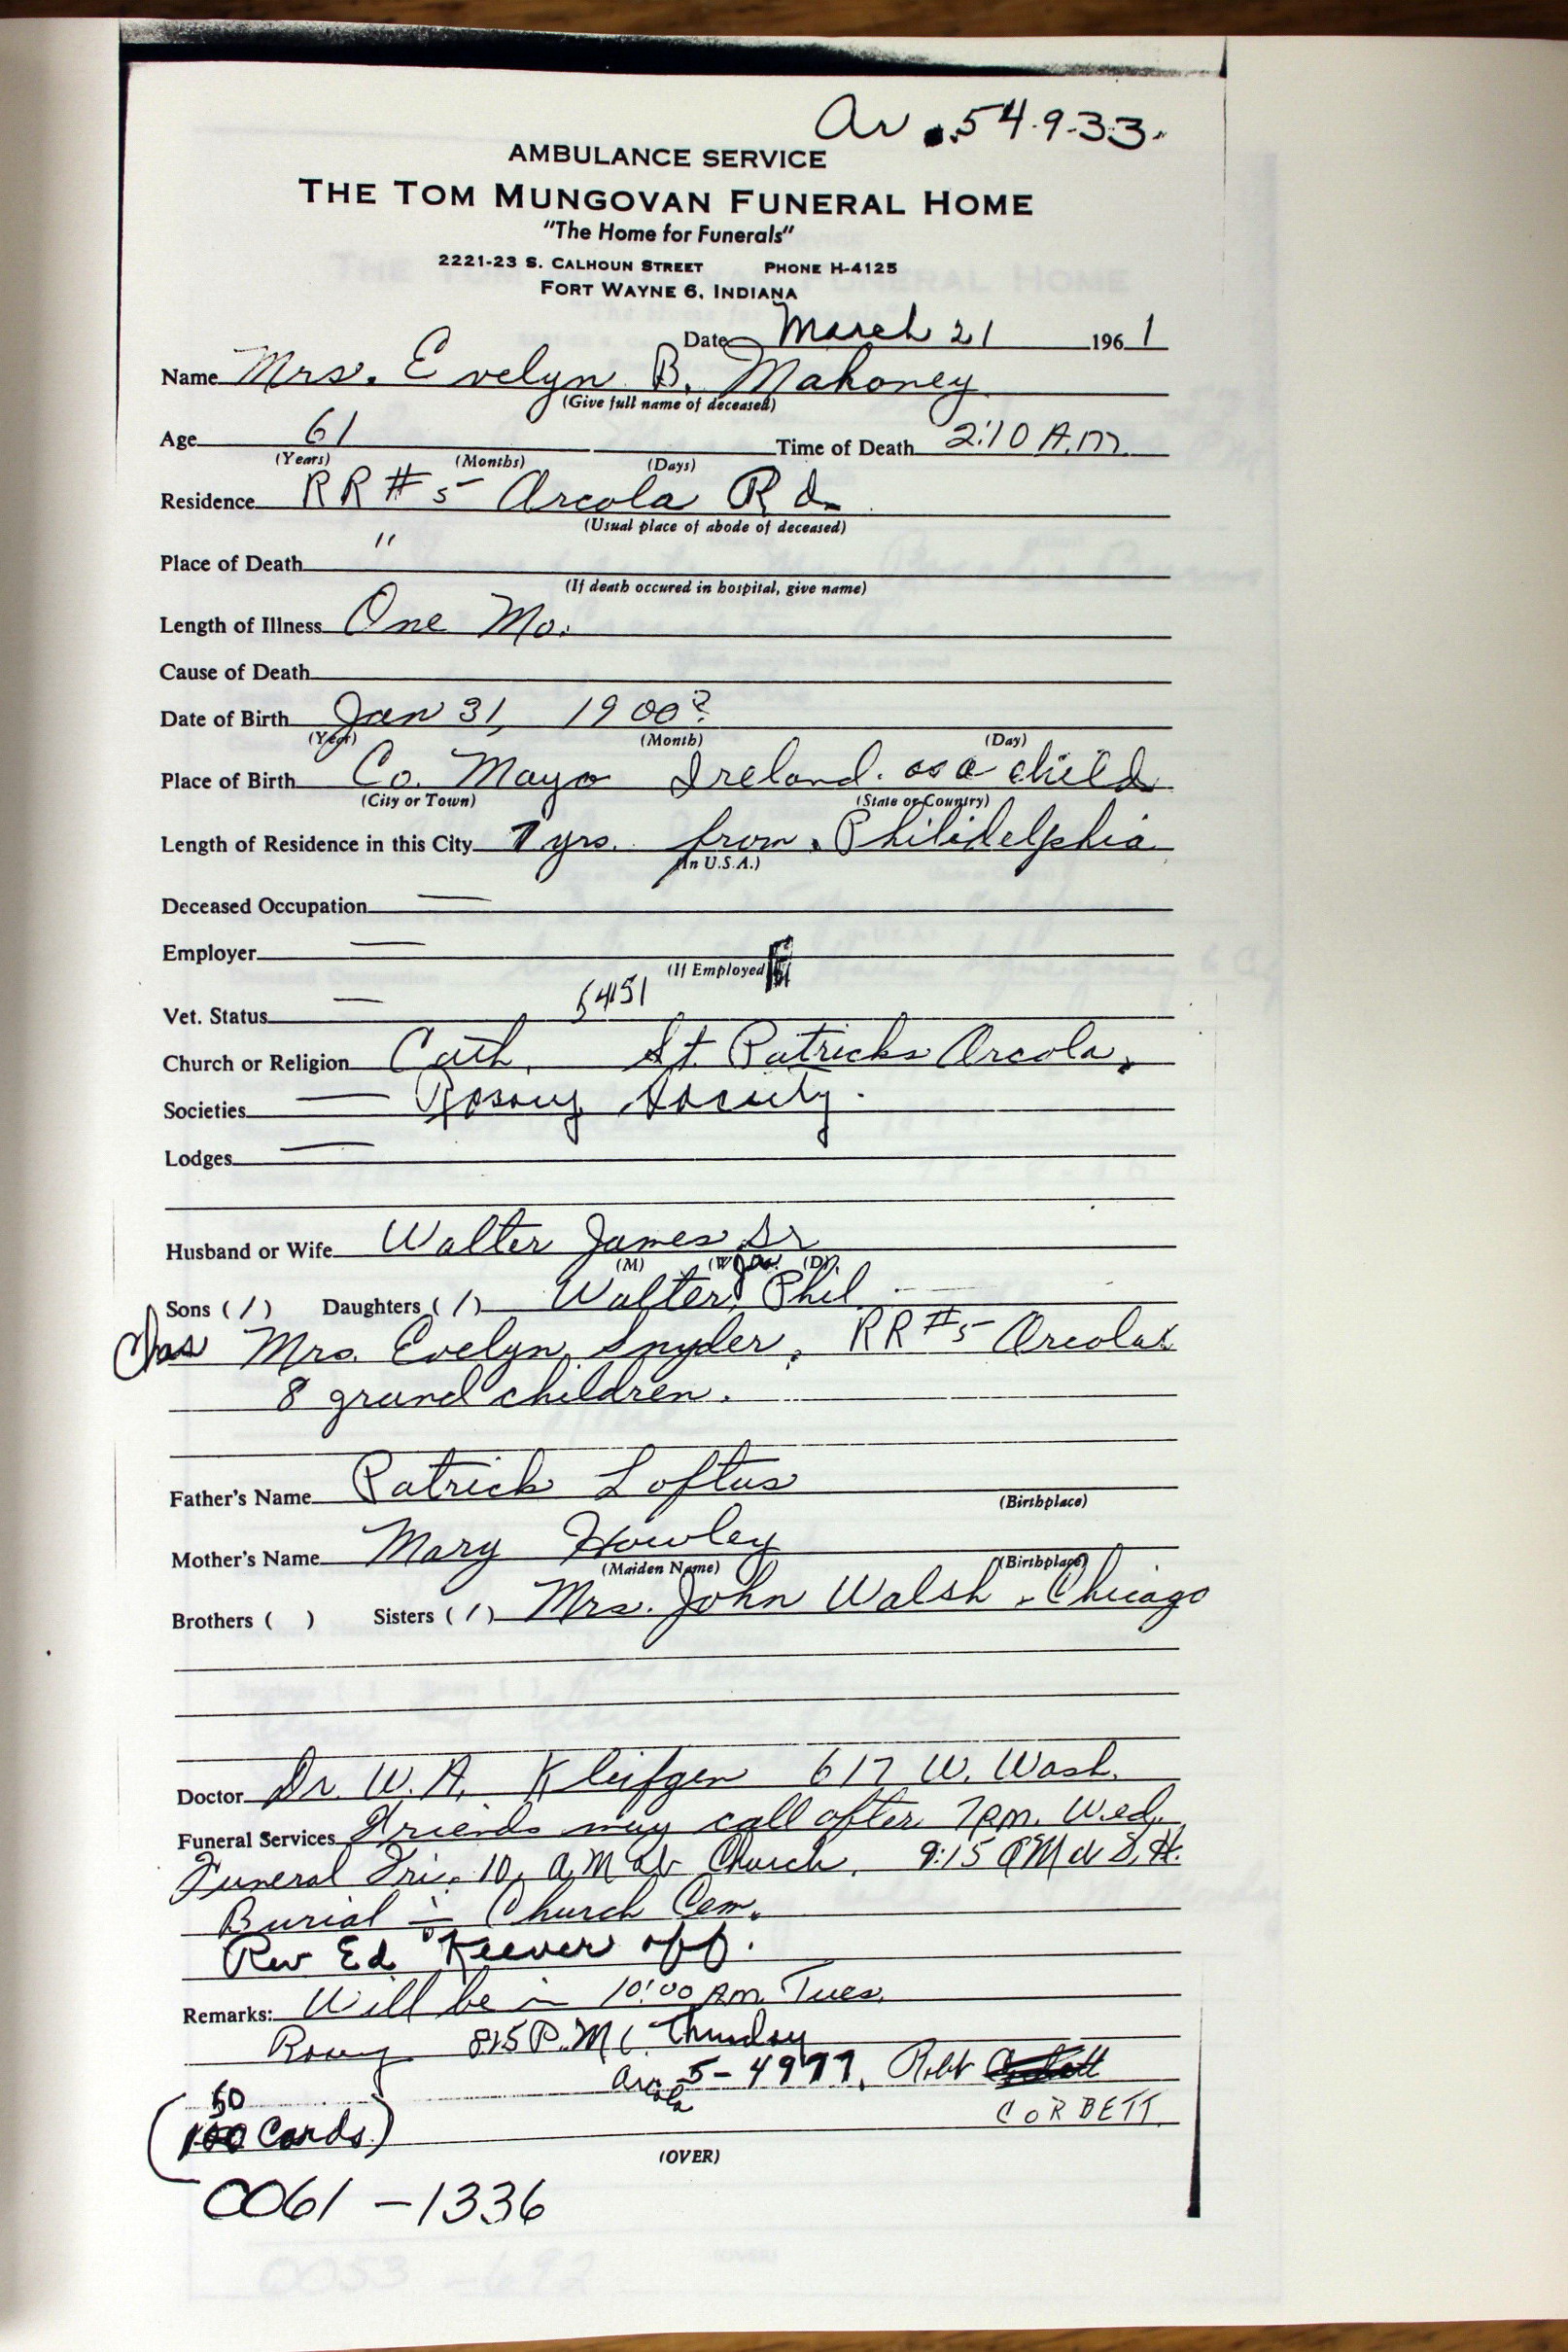 Ar . 54-9-33.
AMBULANCE SERVICE
THE TOM MUNGOVAN FUNERAL HOME
"The Home for Funerals"
2221-23 S. CALHOUN STREET PHONE H-4125
FORT WAYNE 6, INDIANA
Date March 21 1961
Name Mrs. Evelyn B. Mahoney
(Give full name of deceased)
Age 61 Time of Death 2:10 A.M.
(Years) (Months) (Days)
Residence RR #5 Arcola Rd
(Usual place of abode of deceased)
Place of Death "
(If death occured in hospital, give name)
Length of Illness One Mo.
Cause of Death
Date of Birth Jan 31, 1900?
(Year) (Month) (Day)
Place of Birth Co. Mayo Ireland. as a child
(City or Town) (State or Country)
Length of Residence in this City 7 yrs. from Philidelphia
(In U.S.A.)
Deceased Occupation —
Employer —
(If Employed)
Vet. Status — 54151
Church or Religion Cath. St. Patricks Arcola,
Societies — Rosary Society.
Lodges —
Husband or Wife Walter James Sr
(M) (W) (D)
Sons (1) Daughters (1) Walter Jr. Phil
Chas Mrs. Evelyn Snyder, RR #5 Arcola
8 grand children.
Father's Name Patrick Loftus
(Birthplace)
Mother's Name Mary Howley
(Maiden Name) (Birthplace)
Brothers ( ) Sisters (1) Mrs. John Walsh - Chicago
Doctor Dr. W. A. Kleifgen 617 W. Wash.
Funeral Services Friends may call after 7 pm. Wed.
Funeral Fri. 10, A.M at Church. 9:15 AM at
Burial in Church Cem.
Rev Ed Keever off.
Remarks: Will be in 10:00 Am Tues.
Rosary 815 P.M. Thursday
Arcola 5-4977, Robt
CORBETT
50
(100 Cards)
(OVER)
0061 - 1336
0053 - 692